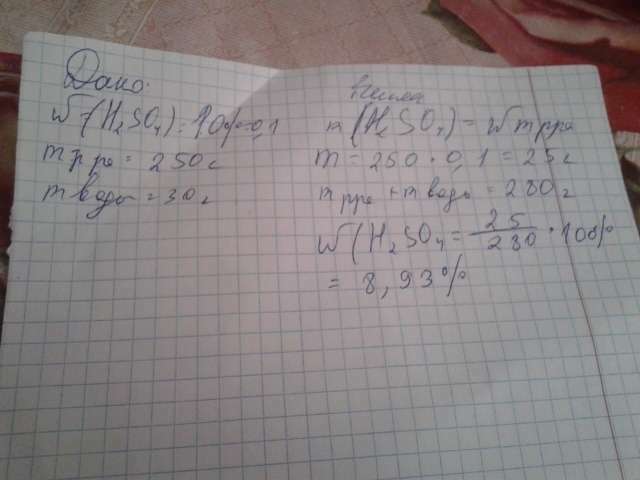 Дано:
W(H₂SO₄) = 10% = 0,1
m р-ра = 250 г
m воды = 30 г
m(H₂SO₄) = W m р-ра
m = 250 · 0,1 = 25 г
m р-ра + m воды = 280 г
W(H₂SO₄ = 25/280 · 100%
= 8,93%